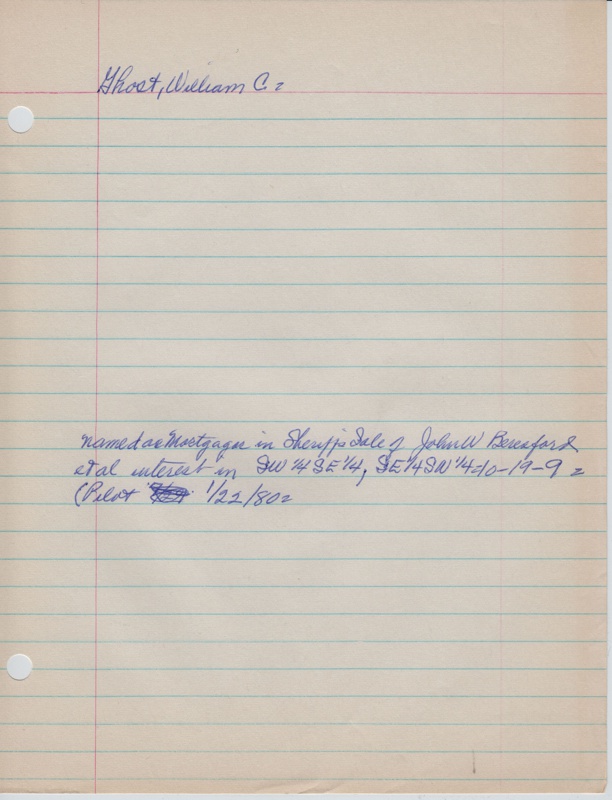 Ghost, William C.=
named as Mortgagee in Sheriff's Sale of John W Beresford
et al interest in SW 1/4 SE 1/4, SE 1/4 SW 1/4 10-19-9=
(Pilot 1/22/80=